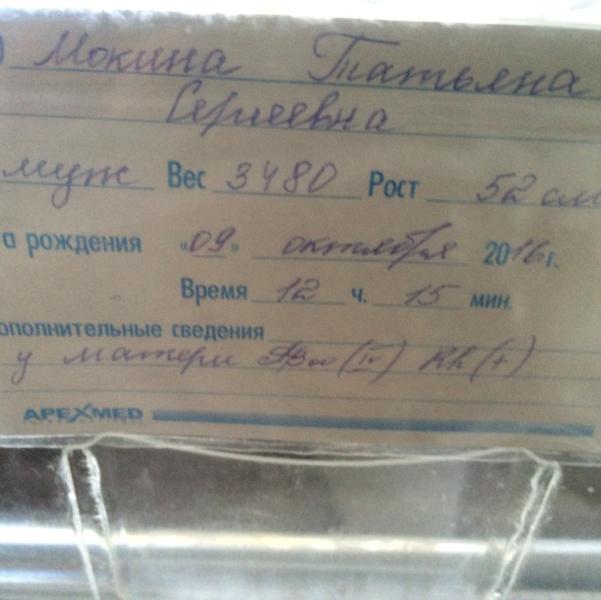 Мокина Татьяна
Сергеевна
муж Вес 3480 Рост 52 см
та рождения «09» октября 2016г.
Время 12 ч. 15 мин.
ополнительные сведения
у матери (IV) Rh (+)
APEXMED